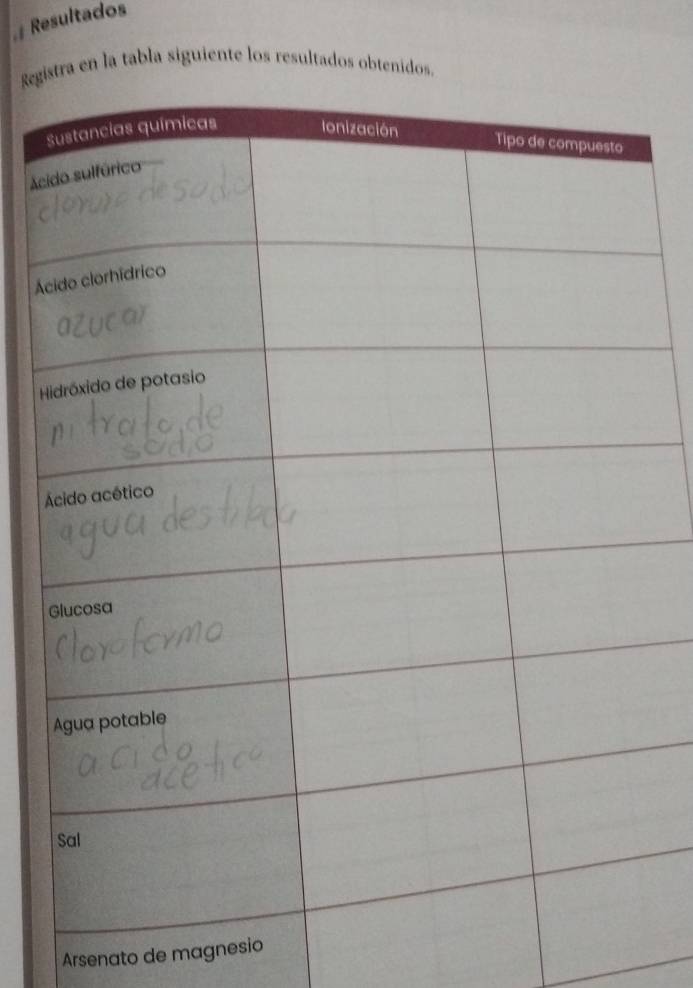 Resultados
Registra en la tabla siguiente los resultados obtenidos.
Sustancias químicas Ionización Tipo de compuesto
Ácido sulfúrico
cloruro de sodo
Ácido clorhídrico
azucar
Hidróxido de potasio
nitrato de
sodio
Ácido acético
agua destilada
Glucosa
Cloroformo
Agua potable
acido
acetico
Sal
Arsenato de magnesio